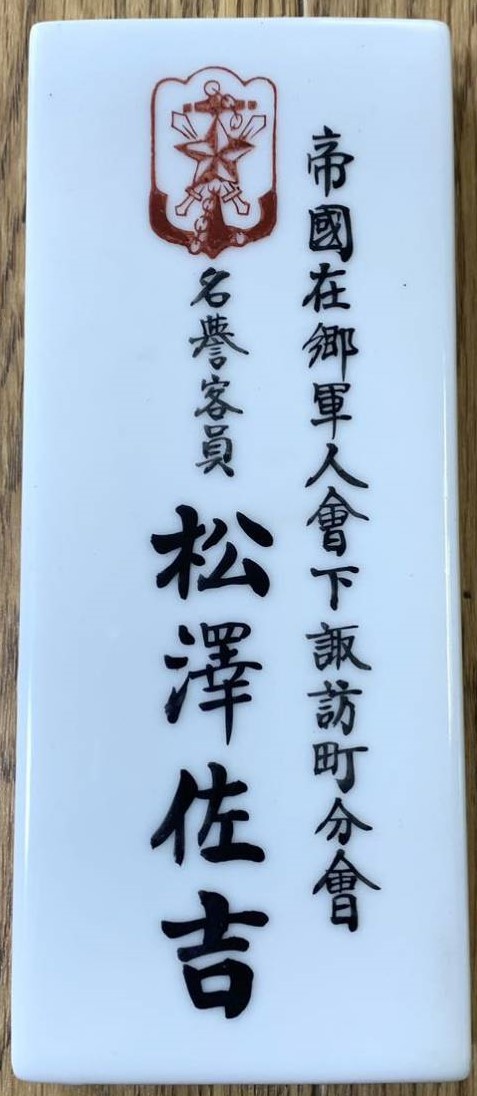 帝國在郷軍人會下諏訪町分會
名譽客員 松澤佐吉